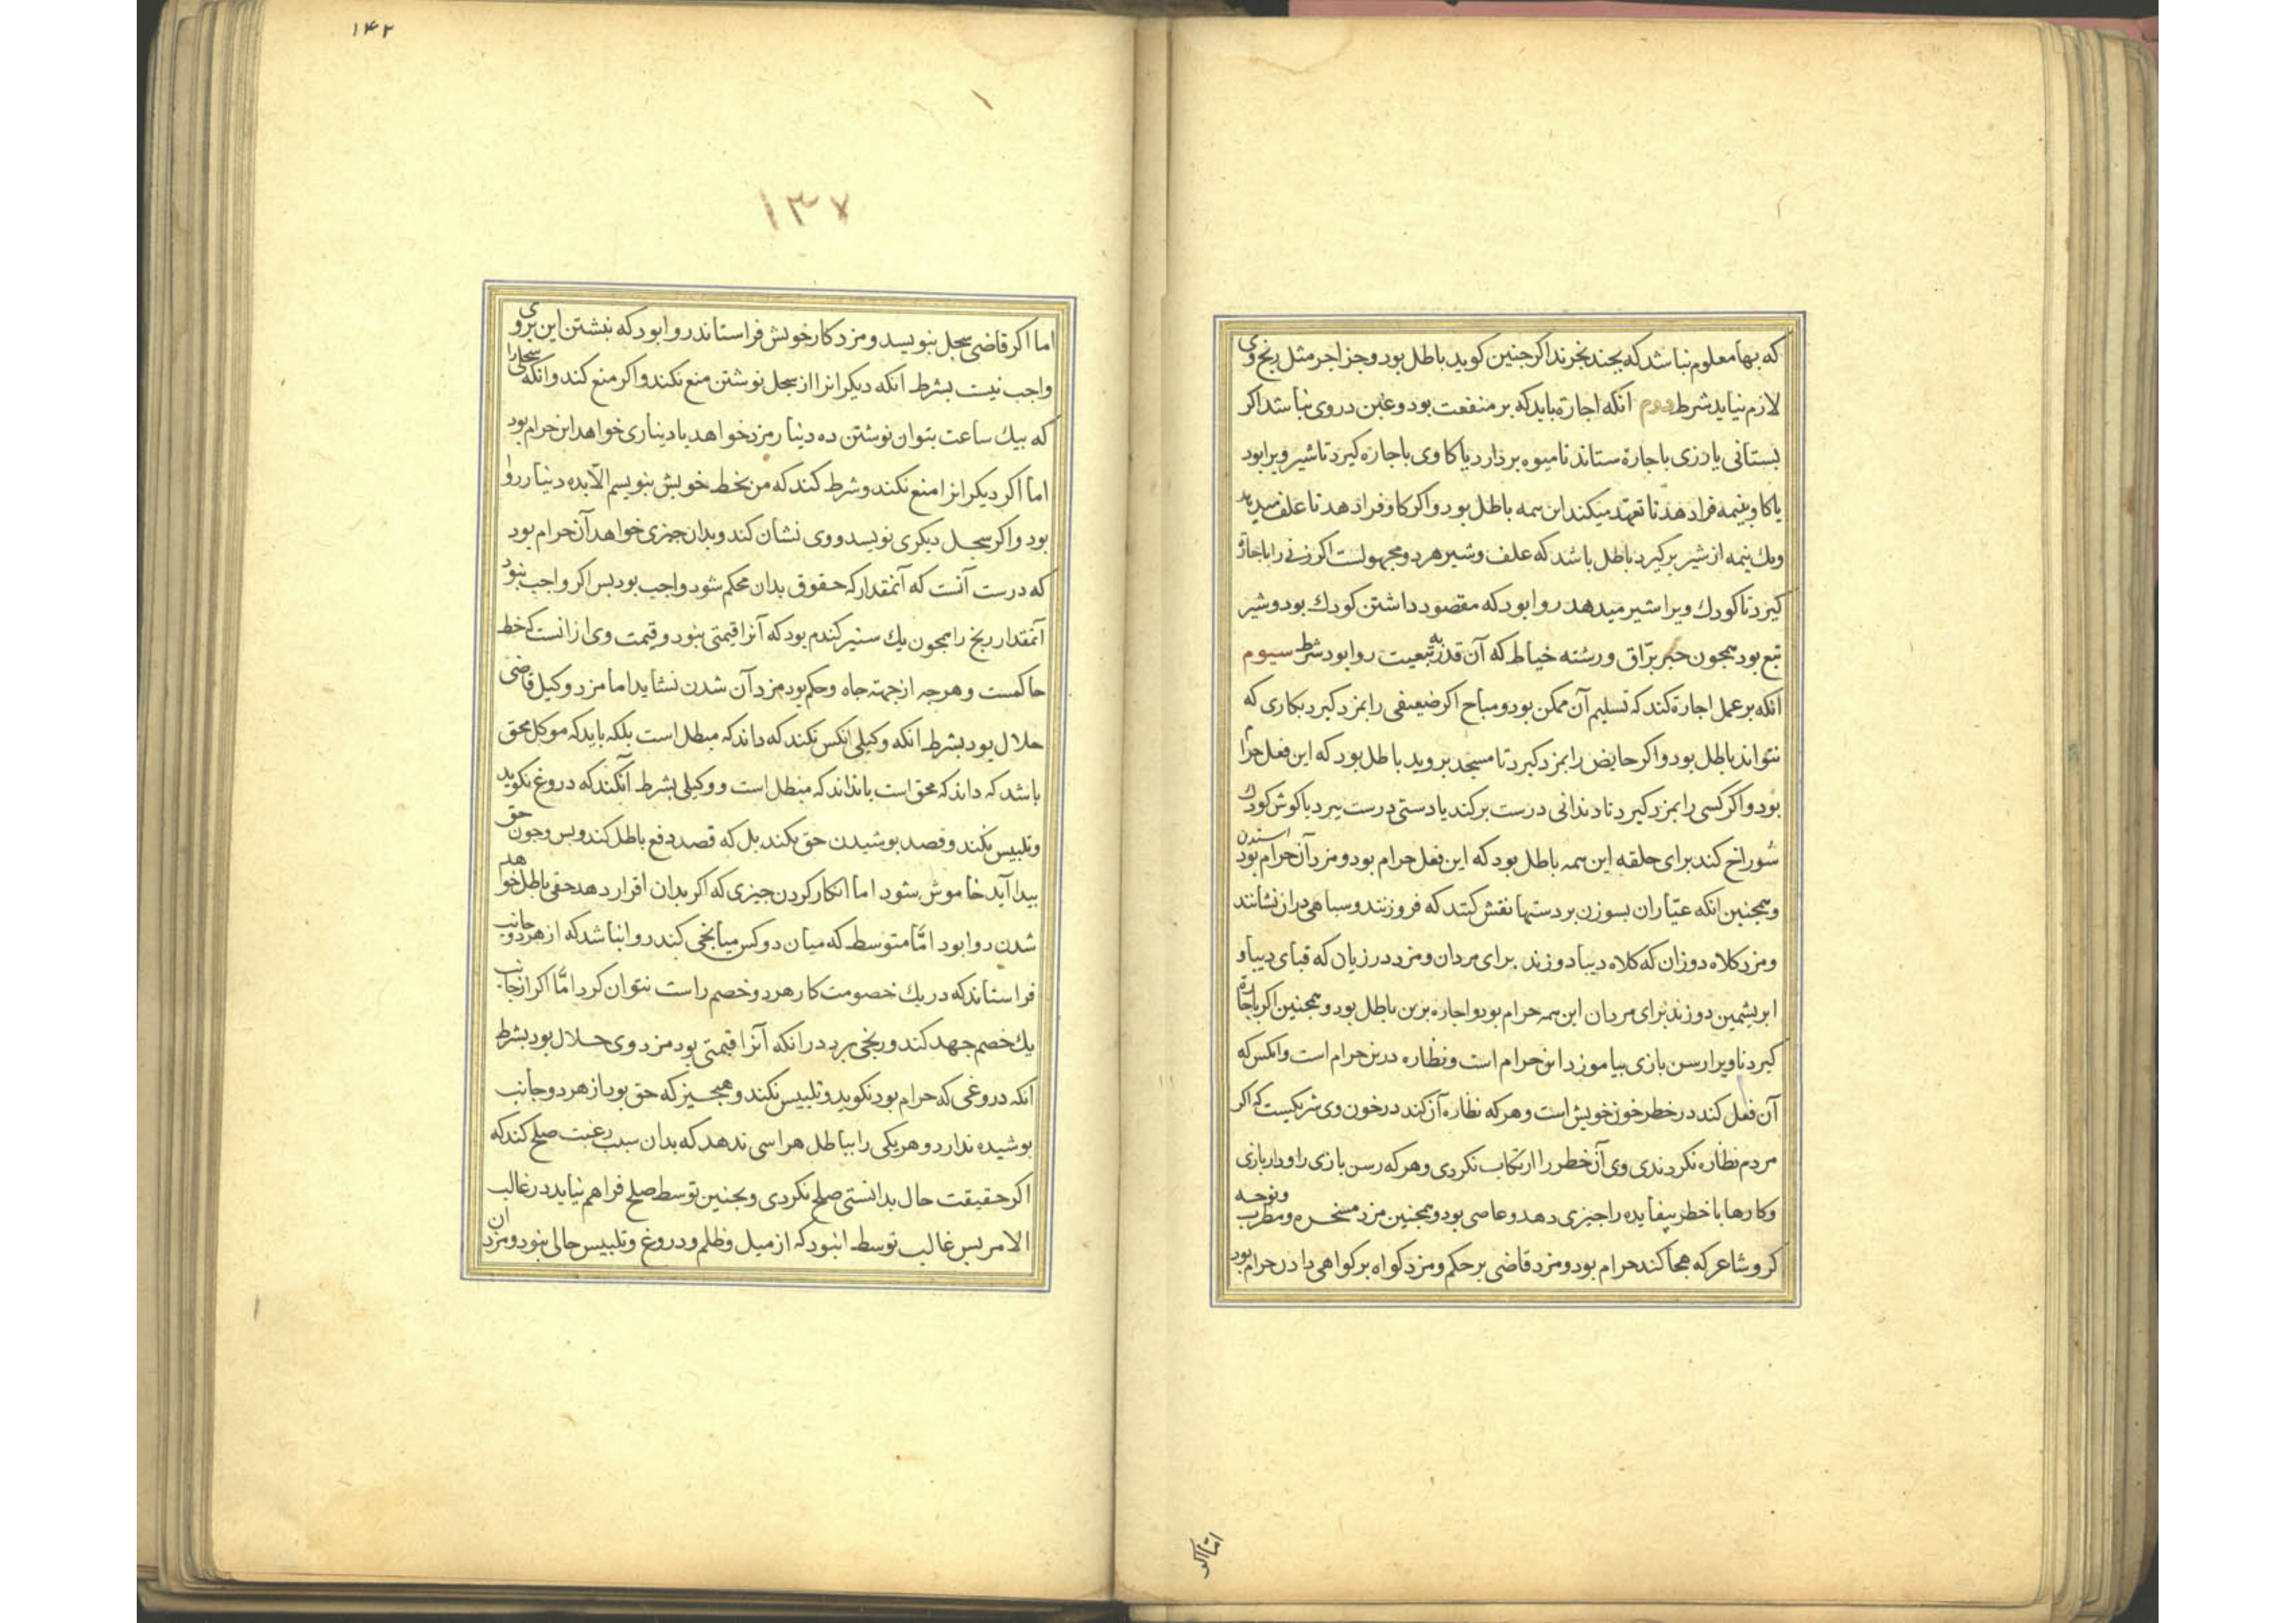 که بها معلوم نباشد که بچند بخرند اکر جنین کوید باطل بود و جز اجر مثل رنج وی
لازم نیاید شرط دوم انکه اجارة باید که بر منفعت بود و عین در وی نباشد اکر
بستانی یا رزی باجارة ستاند تا میوه بردارد یا کاوی باجاره کیرد تا شیر ویرا بود
یا کاو بنیمه فرادهد تا تعهد میکند این همه باطل بود و اکر کاو فرادهد تا علف میدهد
ویك نیمه از شیر برکیرد باطل باشد که علف و شیر هردو مجهولست اکر زنی را باجارة
کیرد تا کودك ویرا شیر میدهد روا بود که مقصود داشتن کودك بود و شیر
تبع بود همجون حبر برّاق و رشته خیاط که آن قدر به تبعیت روا بود شرط سیوم
انکه بر عمل اجارة کند که تسلیم آن ممکن بود و مباح اکر ضعیفی را بمزد کیرد بکاری که
نتواند باطل بود و اکر حایض را بمزد کیرد تا مسجد بروید باطل بود که این فعل حرام
بود و اکر کسی را بمزد کیرد تا دندانی درست برکند یا دستی درست ببرد یا کوش کودك
سوراخ کند برای حلقه این همه باطل بود که این فعل حرام بود و مزد آن حرام بود استدن
وهمجنین انکه عیّاران بسوزن بر دستها نقش کنند که فروزنند و سیاهی دران نشانند
ومزد کلاه دوزان که کلاه دیبا دوزند برای مردان ومزد درزیان که قبای دیبا و
ابریشمین دوزند برای مردان این همه حرام بود و اجاره برین باطل بود و همجنین اکر باجاره
کیرد تا ویرا رسن بازی بیاموزد این حرام است ونظاره درین حرام است وانکس که
آن فعل کند در خطر خون خویش است وهرکه نظاره آن کند در خون وی شریکیست که اکر
مردم نظاره نکردندی وی آن خطر را ارتکاب نکردی وهرکه رسن بازی را ودار بازی
وکارها با خطر بیفایده را جیزی دهد و عاصی بود وهمجنین مزد مسخره ومطرب ونوحه
کر وشاعر که هجا کند حرام بود ومزد قاضی بر حکم ومزد کواه بر کواهی دادن حرام بود
اما اکر
۱۴۲
۱۳۷
اما اکر قاضی سجل بنویسد ومزد کار خویش فراستاند روا بود که نبشتن این بر وی
واجب نیست بشرط انکه دیکرانرا از سجل نوشتن منع نکند واکر منع کند وانکه سجلی را
که بیك ساعت بتوان نوشتن ده دینار مزد خواهد یا دیناری خواهد این حرام بود
اما اکر دیکرانرا منع نکند و شرط کند که من بخط خویش ننویسم الّا بده دینار روا
بود واکر سجل دیکری نویسد و وی نشان کند و بدان جیزی خواهد آن حرام بود
که درست آنست که آنمقدار که حقوق بدان محکم شود واجب بود بس اکر واجب نبود
آنمقدار رنج را همجون یك ستیر کندم بود که آنرا قیمتی نبود و قیمت وی ازانست که خط
حاکمست وهرجه از جهته جاه وحکم بود مزد آن شدن نشاید اما مزد وکیل قاضی
حلال بود بشرط انکه وکیلی انکس نکند که داند که مبطل است بلکه باید که موکل محق
باشد که داند که محق است یا نداند که مبطل است و وکیلی بشرط آنکند که دروغ نکوید
وتلبیس نکند وقصد بوشیدن حق نکند بل که قصد دفع باطل کند وبس وجون حق
بیدا آید خاموش شود اما انکار کردن جیزی که اکر بدان اقرار دهد حقی باطل خواهد
شدن روا بود امّا متوسط که میان دو کس میانجی کند روا نباشد که از هردو جانب
فراستاند که در یك خصومت کار هردو خصم راست نتوان کرد امّا اکر از جانب
یك خصم جهد کند و رنجی برد در انکه آنرا قیمتی بود مزد وی حلال بود بشرط
انکه دروغی که حرام بود نکوید وتلبیس نکند وهیجیز که حق بود از هردو جانب
بوشیده ندارد وهریکی را بباطل هراسی ندهد که بدان سبب رغبت صلح کند که
اکر حقیقت حال بدانستی صلح نکردی وبجنین توسط صلح فراهم نیاید در غالب
الامر بس غالب توسط انبود که از میل وظلم و دروغ وتلبیس خالی نبود ومزد ان